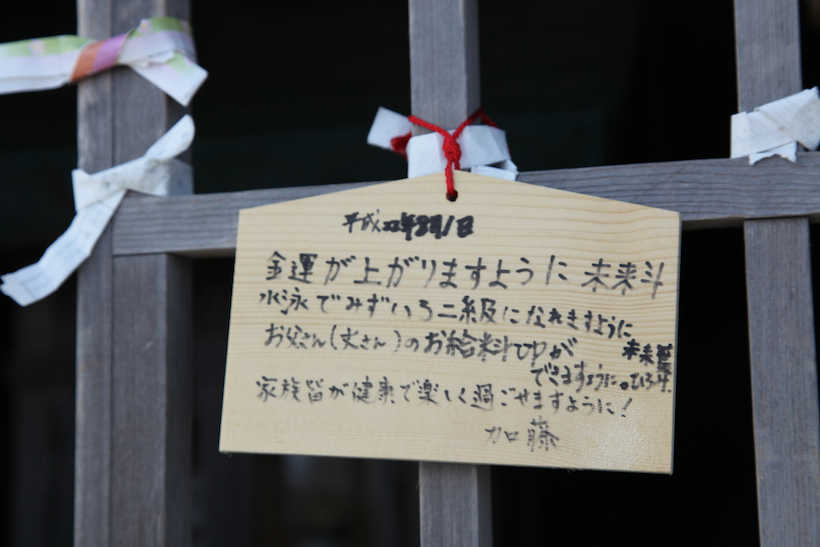 平成22年8月1日
金運が上がりますように 未来斗
水泳でみずいろ二級になれますように
お父さん(丈さん)のお給料UPが
できますように。ひろみ
家族皆が健康で楽しく過ごせますように!
加藤